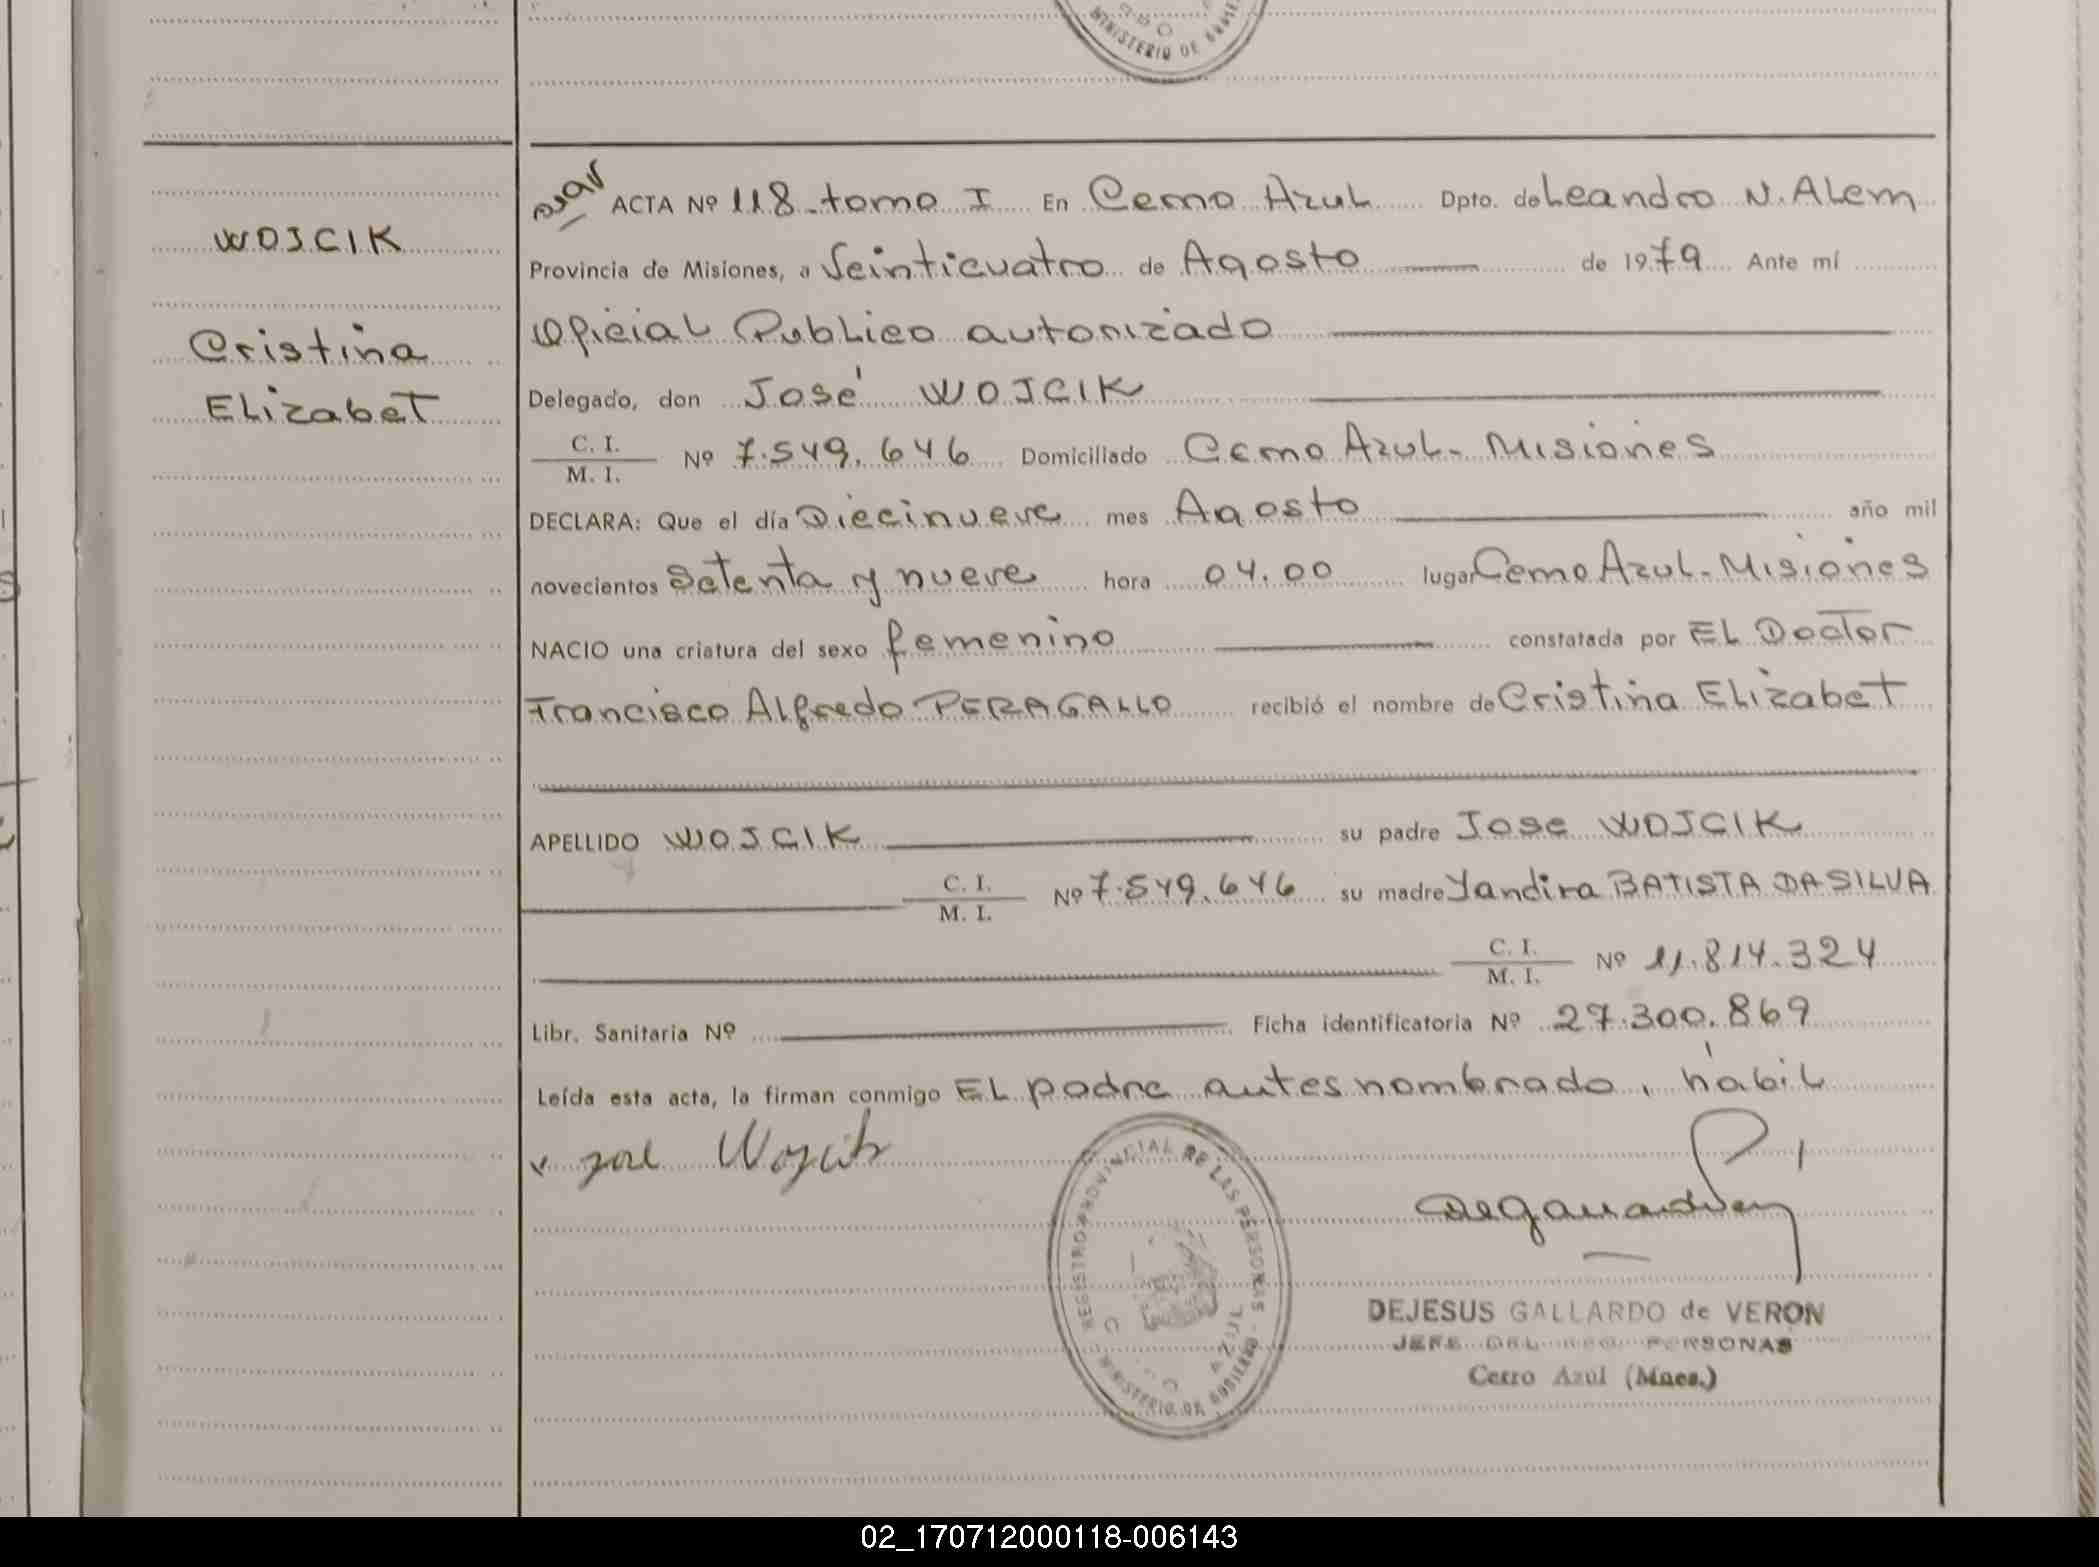 MINISTERIO DE GOBIE
ACTA Nº 118 - tomo I En Cerro Azul Dpto. de Leandro N. Alem
WOJCIK
Provincia de Misiones, a Veinticuatro de Agosto de 1979 Ante mí
Oficial Publico autorizado
Cristina
Elizabet
Delegado, don José WOJCIK
C. I.
M. I. Nº 7.549.646 Domiciliado Cerro Azul - Misiones
DECLARA: Que el día Diecinueve mes Agosto año mil
novecientos Setenta y nueve hora 04.00 lugar Cerro Azul - Misiones
NACIO una criatura del sexo femenino constatada por EL Doctor
Francisco Alfredo PERAGALLO recibió el nombre de Cristina Elizabet
APELLIDO WOJCIK su padre Jose WOJCIK
C. I.
M. I. Nº 7.549.646 su madre Yandira BATISTA DA SILVA
C. I.
M. I. Nº 11.814.324
Libr. Sanitaria Nº Ficha identificatoria Nº 27.300.869
Leída esta acta, la firman conmigo EL padre antes nombrado, hábil
José Wojcik
REGISTRO PROVINCIAL DE LAS PERSONAS -
MINISTERIO DE GOBIERNO
AZUL
DEJESUS GALLARDO de VERON
JEFE DEL REG. PERSONAS
Cerro Azul (Mnes.)
02_170712000118-006143